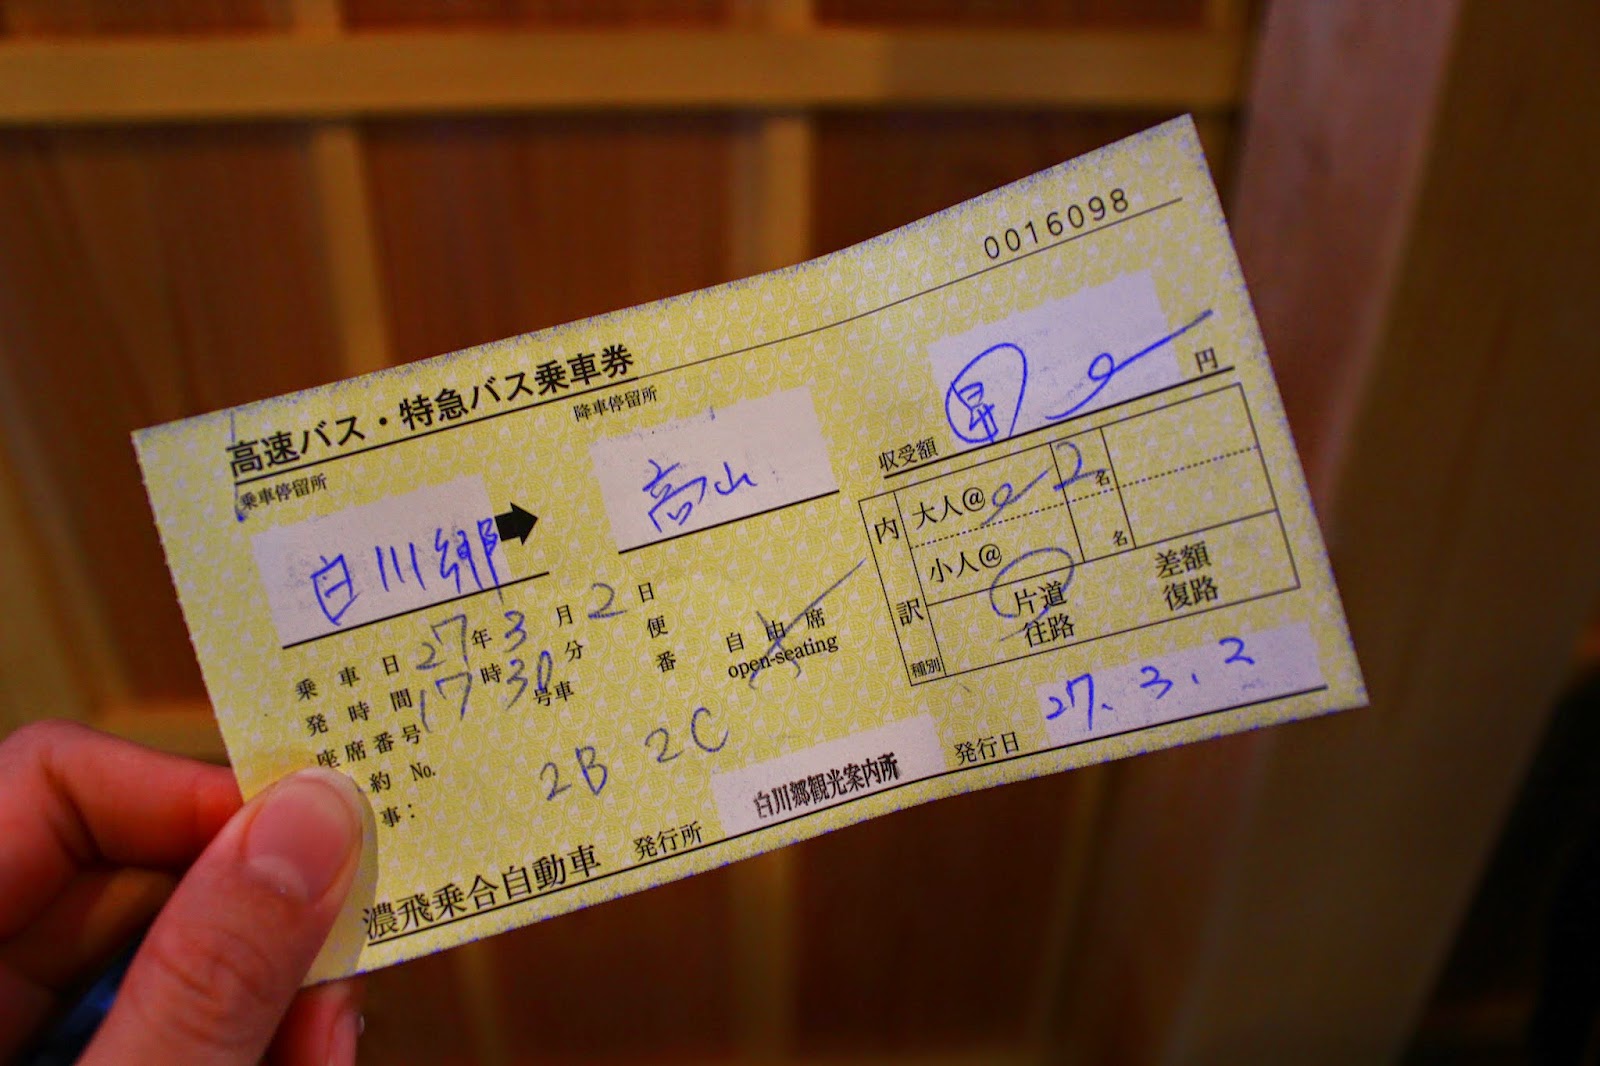 0016098
高速バス・特急バス乗車券
乗車停留所
降車停留所
白川郷
高山
収受額
円
乗車日 27年 3月 2日
発時間 17時 30分
便
番
号車
自由席
open-seating
座席番号
2B 2C
約 No.
事:
内訳
大人@ 2名
小人@ 名
種別
片道
往路
差額
復路
濃飛乗合自動車
発行所
白川郷観光案内所
発行日
27. 3. 2